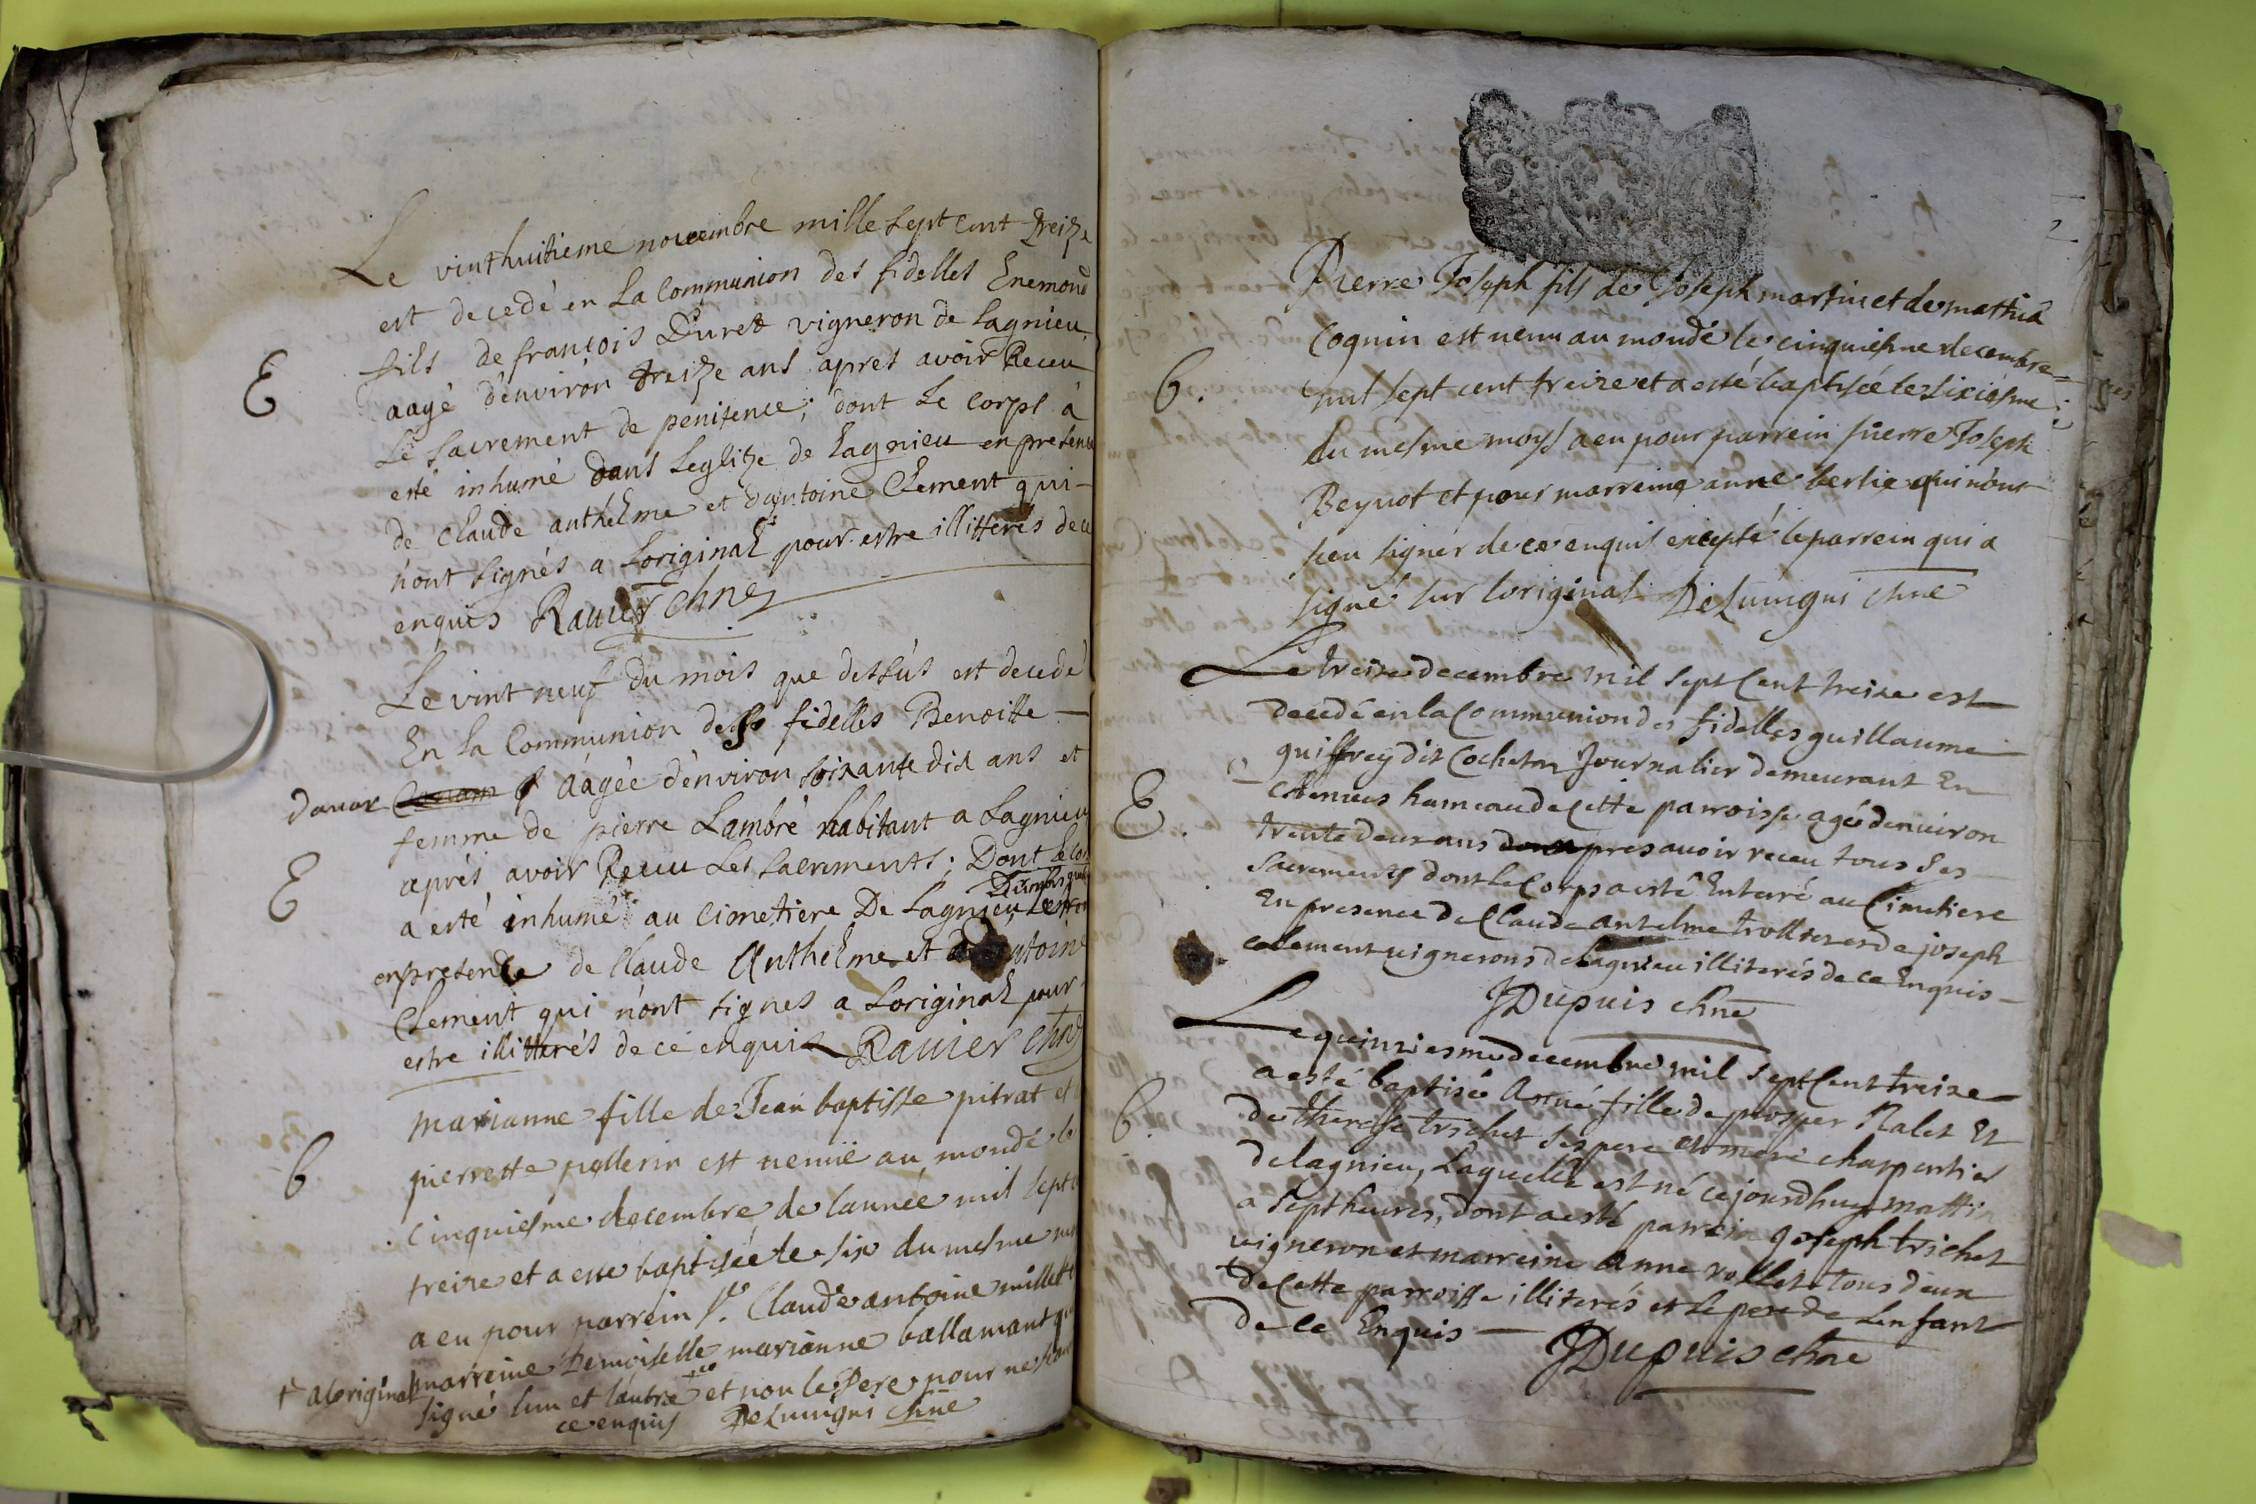 Le vinthuitieme novembre mille sept cent treize
est decedé en La Communion des fidelles Enemond
fils de françois Duret vigneron de Lagnieu
E
aagé d'environ treize ans apres avoir Receu
Le Sacrement de penitence; dont Le corps à
esté inhumé dans Leglize de Lagnieu en presence
de Claude anthelme et d'antoine Clement qui-
n'ont signés a Loriginal pour estre illitterés de ce
enquis Ravier chne
Le vint neuf du mois que dessus est decedé
En La Communion des fidelles Benoitte
davar aagée d'environ soixante dix ans et
femme de pierre Lambré habitant a Lagnieu
E
après avoir Receu Les Sacrements; Dont Le
a esté inhumé au Cimetiere De Lagnieu
en presence de Claude Anthelme et
Clement qui n'ont signes a Loriginal pour
estre illitterés de ce enquis Ravier chne
marianne fille de Jean baptiste pitrat et
B
pierrette pellerin est venuë au monde le
cinquiesme decembre de l'année mil sept
treize et a esté baptisée le six du mesme
a eu pour parrein Sr. Claude antoine millet
marreine Demoiselle marianne ballamant
+ a loriginal
signé lun et lautre + et non le Pere pour ne
ce enquis DeLuuigni chne
Pierre Joseph fils de Joseph martin et de mathia
Cognin est venu au monde le cinquiesme decembre
B.
mil sept cent treize et a esté baptisée le sixiesme
du mesme moys a eu pour parrein pierre Joseph
Beynot et pour marreine anne berlie qui n'ont
sceu signer de ce enquis excepté le parrein qui a
signé sur loriginal DeLuuigni chne
Le treize decembre mil Sept Cent treize est
decedé en la Communion des fidelles guillaume
guiffrey dit Cocheton Journalier demeurant En
E.
hameau de Cette parroisse agé denviron
trente deux ans apres avoir receu tous Ses
Sacrements dont le Corps a esté Enterré au Cimetiere
En presence de Claude antelme trollier et de joseph
clement vignerons de lagnieu illiterés de ce Enquis
JDupuis chne
Le quinziesme decembre mil Sept Cent treize
a esté baptisée Anne fille de prosper Ralet Et
B.
de therese trichet Ses pere et mere charpentier
de lagnieu, Laquelle est né ce jourdhuy mattin
a Sept heures, dont a esté parrein joseph trichet
vigneron et marreine anne rollet tous deux
de Cette parroisse illiterés et le pere de Lenfant
de Ce Enquis JDupuis chne